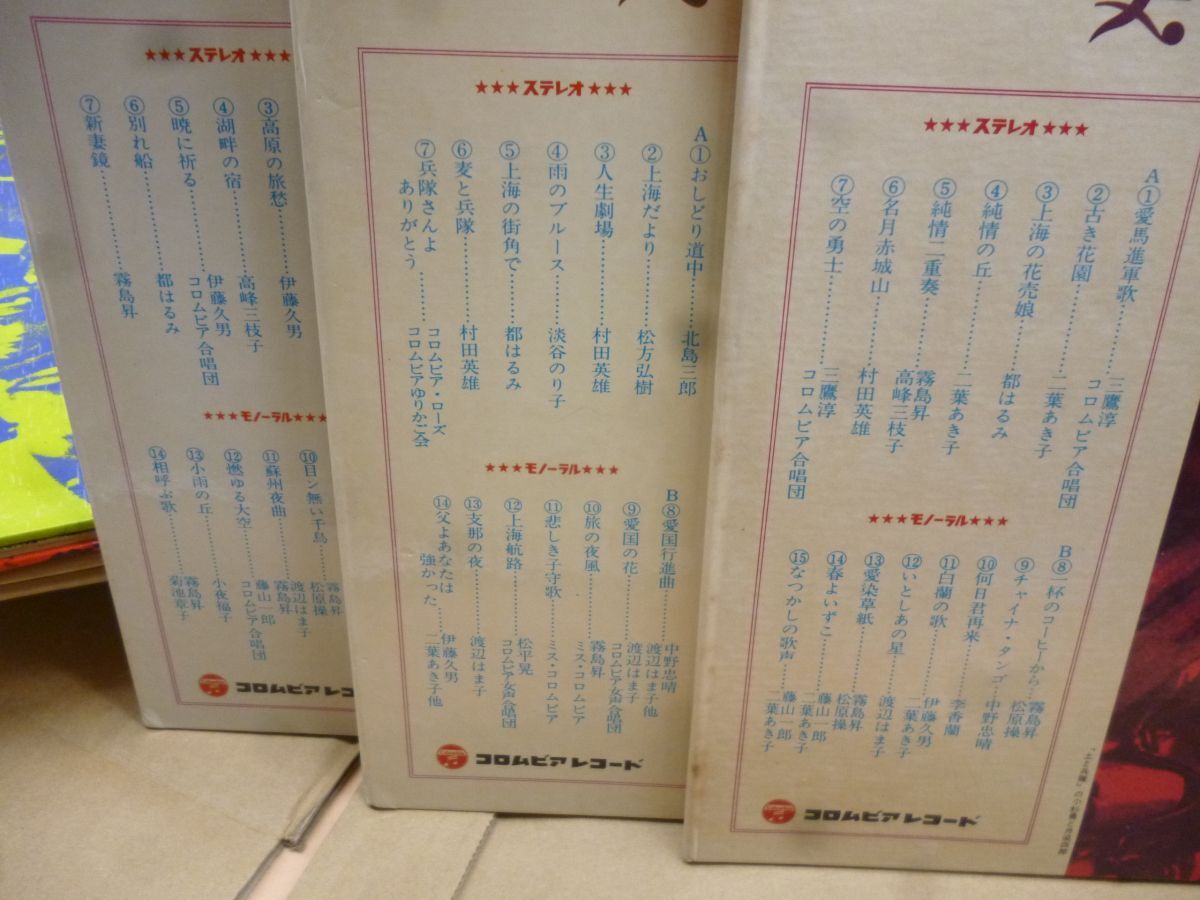 ★★★ステレオ★★★
③高原の旅愁………伊藤久男
④湖畔の宿………高峰三枝子
⑤暁に祈る………伊藤久男
コロムビア合唱団
⑥別れ船………都はるみ
⑦新妻鏡………霧島昇
★★★モノーラル★★★
⑩目ン無い千鳥………霧島昇
松原操
⑪蘇州夜曲………渡辺はま子
霧島昇
⑫燃ゆる大空………藤山一郎
コロムビア合唱団
⑬小雨の丘………小夜福子
⑭相呼ぶ歌………霧島昇
菊池章子
コロムビアレコー
★★★ステレオ★★★
A
①おしどり道中………北島三郎
②上海だより………松方弘樹
③人生劇場………村田英雄
④雨のブルース………淡谷のり子
⑤上海の街角で………都はるみ
⑥麦と兵隊………村田英雄
⑦兵隊さんよ
ありがとう………コロムビア・ローズ
コロムビアゆりかご会
★★★モノーラル★★★
B
⑧愛国行進曲………中野忠晴
渡辺はま子他
⑨愛国の花………渡辺はま子
コロムビア女声合唱団
⑩旅の夜風………霧島昇
ミス・コロムビア
⑪悲しき子守歌………ミス・コロムビア
⑫上海航路………松平晃
コロムビア女声合唱団
⑬支那の夜………渡辺はま子
⑭父よあなたは
強かった………伊藤久男
二葉あき子他
コロムビアレコード
★★★ステレオ★★★
A
①愛馬進軍歌………三鷹淳
コロムビア合唱団
②古き花園………二葉あき子
③上海の花売娘………都はるみ
④純情の丘………二葉あき子
⑤純情二重奏………霧島昇
高峰三枝子
⑥名月赤城山………村田英雄
⑦空の勇士………三鷹淳
コロムビア合唱団
★★★モノーラル★★★
B
⑧一杯のコーヒーから………霧島昇
松原操
⑨チャイナ・タンゴ………中野忠晴
⑩何日君再来………李香蘭
⑪白蘭の歌………伊藤久男
二葉あき子
⑫いとしあの星………渡辺はま子
⑬愛染草紙………霧島昇
松原操
⑭春よいずこ………藤山一郎
二葉あき子
⑮なつかしの歌声………藤山一郎
二葉あき子
コロムビアレコード